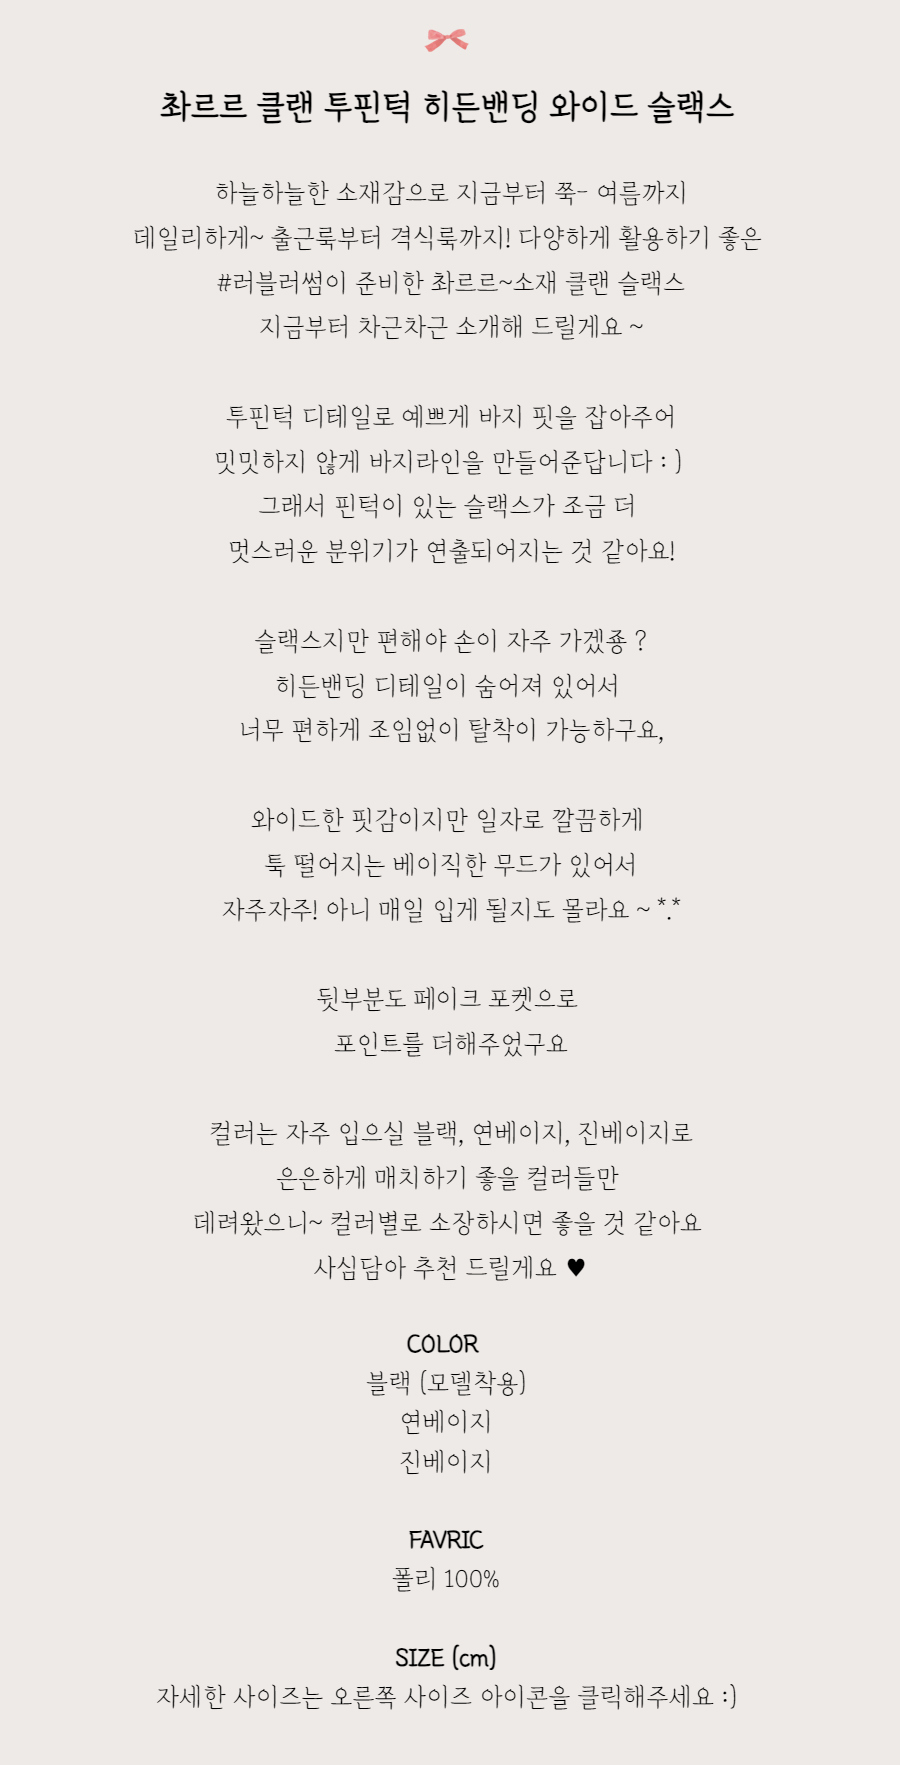 촤르르 클랜 투핀턱 히든밴딩 와이드 슬랙스
하늘하늘한 소재감으로 지금부터 쭉- 여름까지
데일리하게~ 출근룩부터 격식룩까지! 다양하게 활용하기 좋은
#러블러썸이 준비한 촤르르~소재 클랜 슬랙스
지금부터 차근차근 소개해 드릴게요 ~
투핀턱 디테일로 예쁘게 바지 핏을 잡아주어
밋밋하지 않게 바지라인을 만들어준답니다 : )
그래서 핀턱이 있는 슬랙스가 조금 더
멋스러운 분위기가 연출되어지는 것 같아요!
슬랙스지만 편해야 손이 자주 가겠죵 ?
히든밴딩 디테일이 숨어져 있어서
너무 편하게 조임없이 탈착이 가능하구요,
와이드한 핏감이지만 일자로 깔끔하게
툭 떨어지는 베이직한 무드가 있어서
자주자주! 아니 매일 입게 될지도 몰라요 ~ *.*
뒷부분도 페이크 포켓으로
포인트를 더해주었구요
컬러는 자주 입으실 블랙, 연베이지, 진베이지로
은은하게 매치하기 좋을 컬러들만
데려왔으니~ 컬러별로 소장하시면 좋을 것 같아요
사심담아 추천 드릴게요 ♥
COLOR
블랙 (모델착용)
연베이지
진베이지
FAVRIC
폴리 100%
SIZE (cm)
자세한 사이즈는 오른쪽 사이즈 아이콘을 클릭해주세요 :)